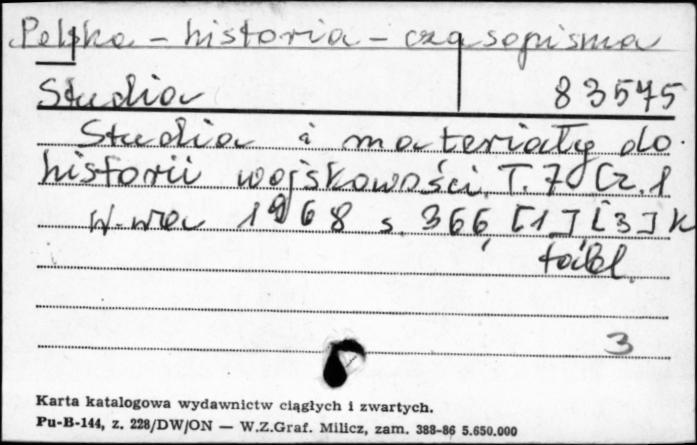 Polska - historia - czasopisma
Studia 83575
Studia i materiały do
historii wojskowości. T. 7 Cz. 1
W-wa 1968 s. 366, [1], [3] k
tabl.
3
Karta katalogowa wydawnictw ciągłych i zwartych.
Pu-B-144, z. 228/DW/ON — W.Z.Graf. Milicz, zam. 388-86 5.650.000